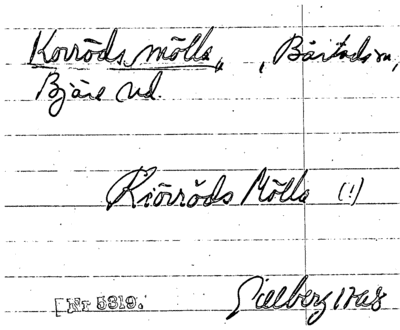 Korröds mölla, , Båstads sn,
Bjäre hd.
Kiörröds Mölla (!)
[Nr 5319.
Gillberg 1765